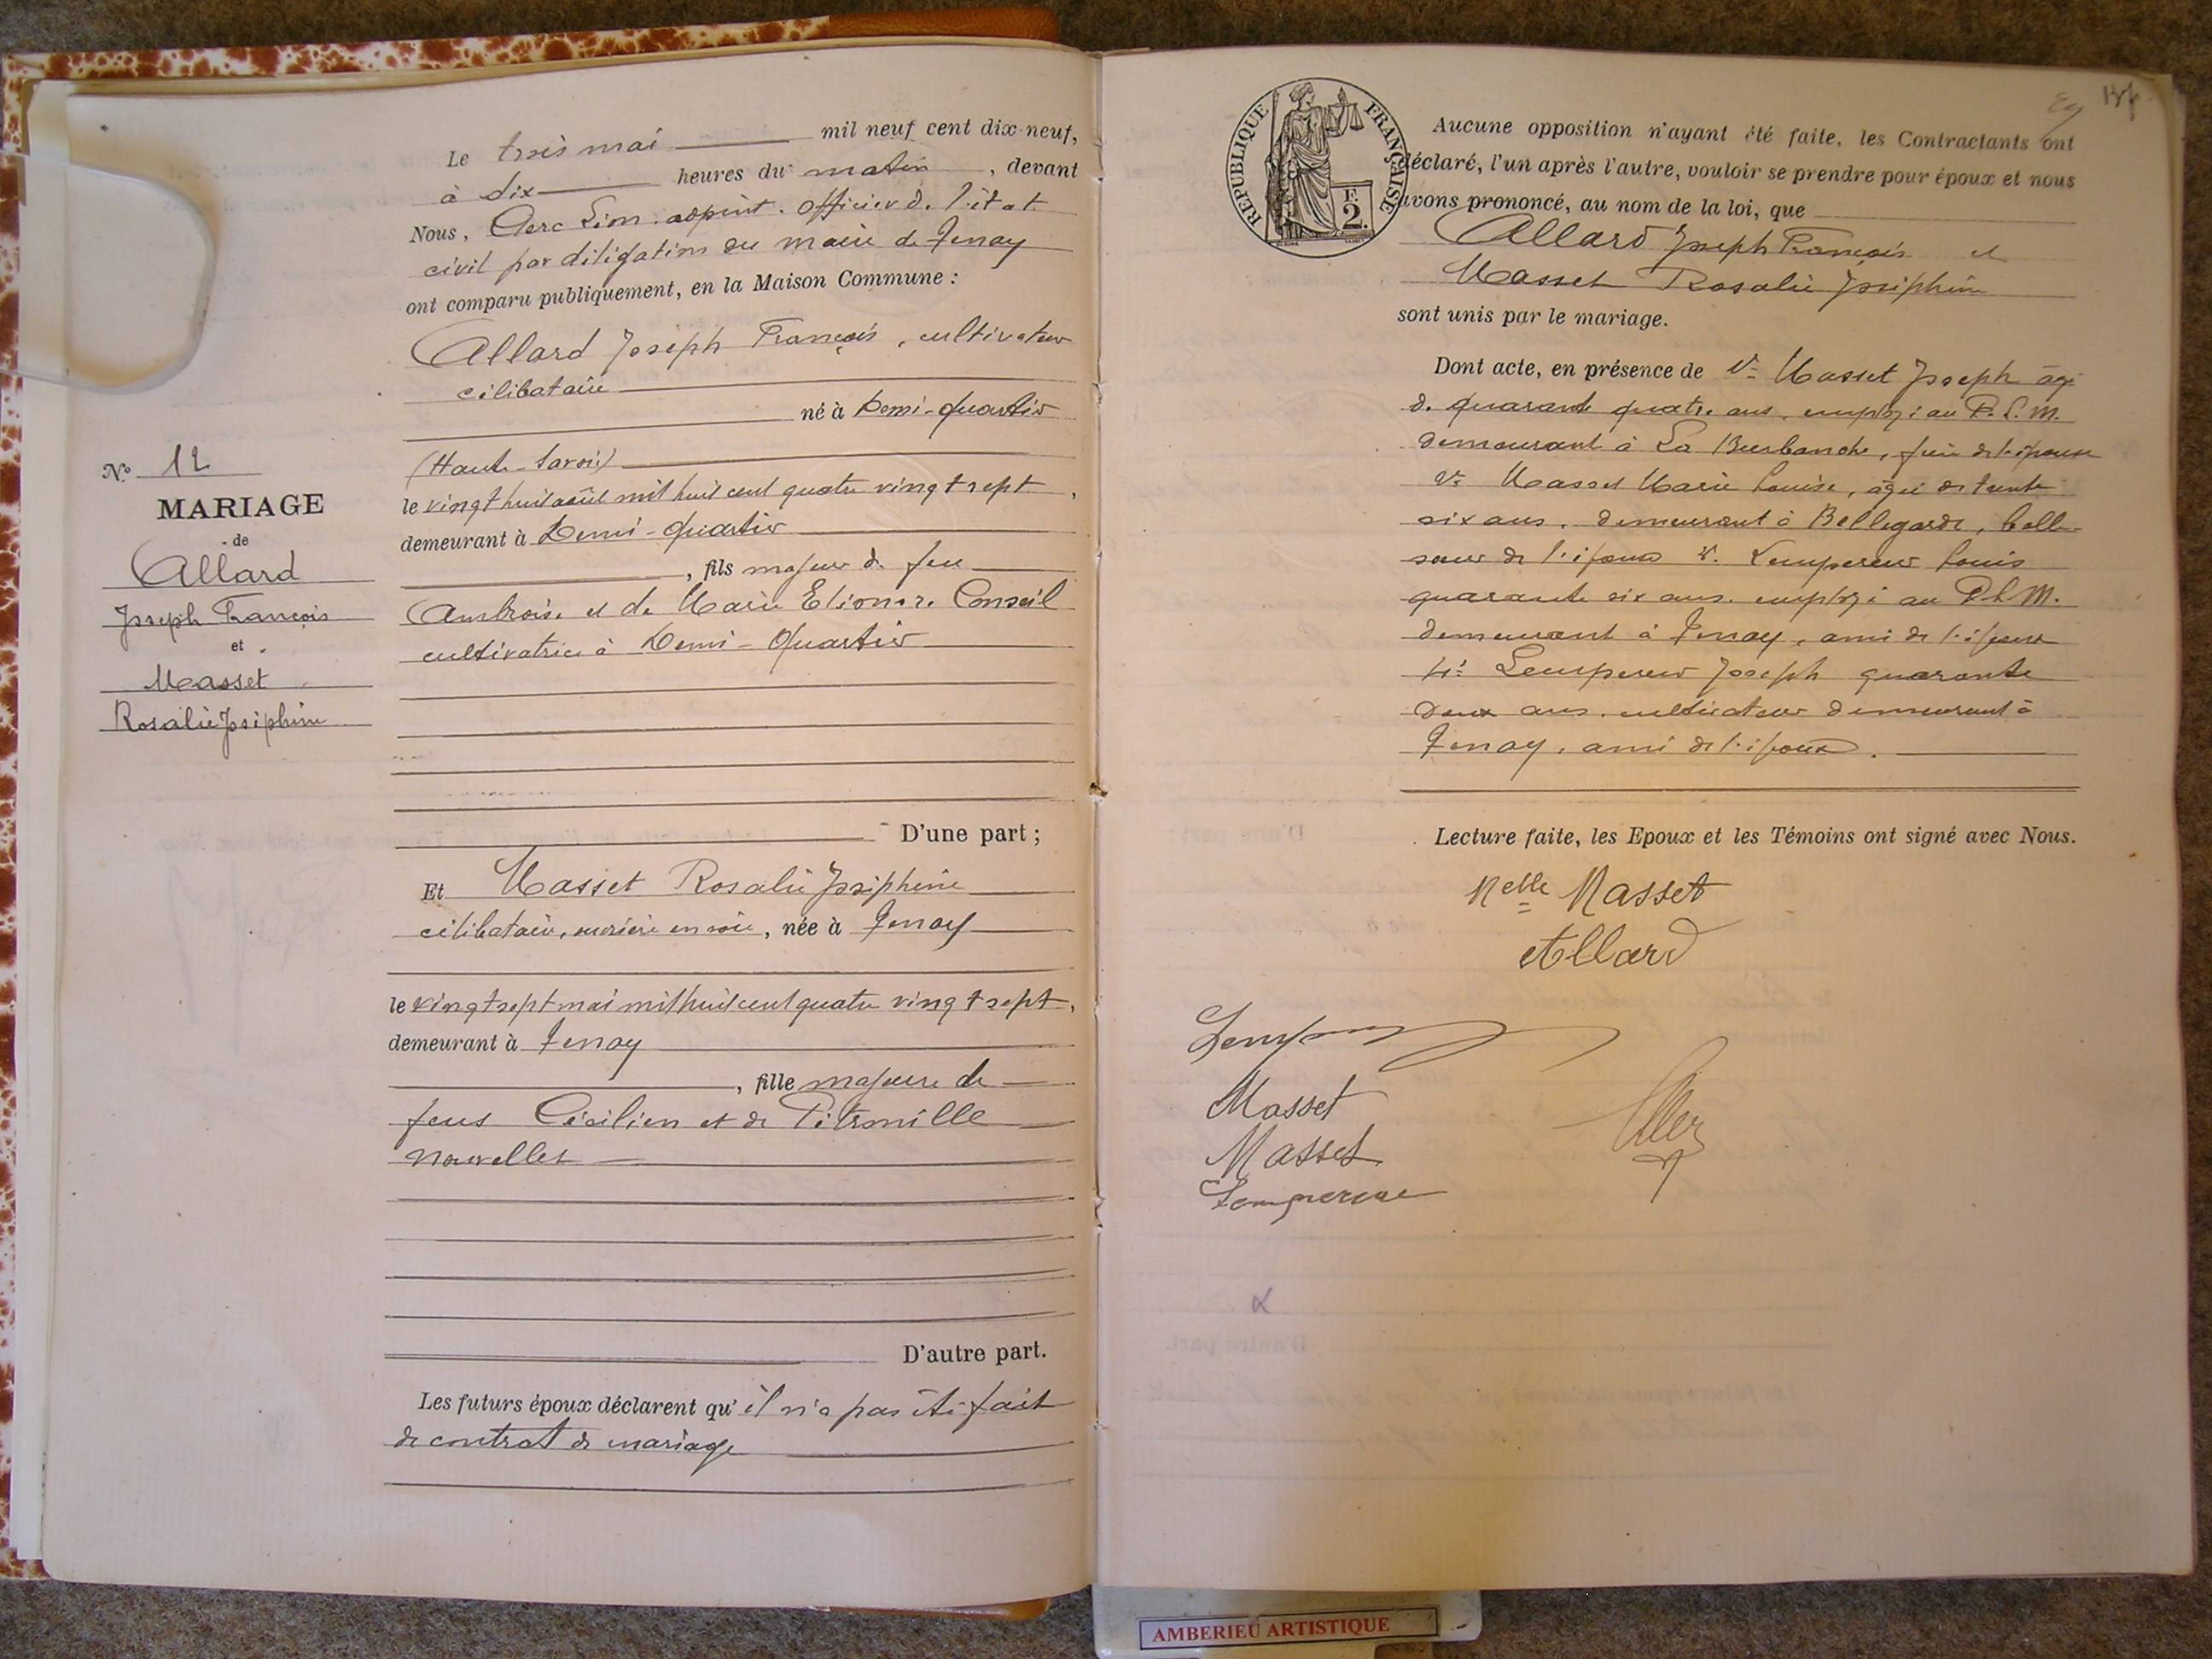 Le trois mai mil neuf cent dix-neuf,
à dix heures du matin, devant
Nous, Clerc Léon. adjoint. officier d. l'état
civil par diligation du maire de Tenay
ont comparu publiquement, en la Maison Commune :
Allard Joseph François, cultivateur
célibataire
né à Demi-Quartier
(Haute-Savoie)
le vingt huit août mil huit cent quatre vingt sept,
demeurant à Demi-Quartier
, fils majeur de feu
Ambroise et de Marie Eléonore Conseil
cultivatrice à Demi-Quartier
D'une part ;
Et Masset Rosalie Joséphine
célibataire, ouvrière en soie, née à Tenay
le vingt sept mai mil huit cent quatre vingt sept,
demeurant à Tenay
, fille majeure de
feus Cécilien et de Pétronille
Nouvellet
D'autre part.
Les futurs époux déclarent qu'il n'a pas été fait
de contrat de mariage
No 12
MARIAGE
de
Allard
Joseph François
et
Masset
Rosalie Joséphine
137
RÉPUBLIQUE FRANÇAISE
F.
2.
Aucune opposition n'ayant été faite, les Contractants ont
déclaré, l'un après l'autre, vouloir se prendre pour époux et nous
avons prononcé, au nom de la loi, que
Allard Joseph François et
Masset Rosalie Joséphine
sont unis par le mariage.
Dont acte, en présence de Masset Joseph âgé
de quarante quatre ans, employé au P. L. M.
demeurant à La Burbanche, frère de l'épouse
Masset Marie Louise, âgée de trente
six ans, demeurant à Bellegarde, belle
sœur de l'épouse Lempereur Louis
quarante six ans. employé au PLM.
demeurant à Tenay, ami de l'épouse
4° Lempereur Joseph quarante
deux ans, cultivateur demeurant à
Tenay, ami de l'époux.
Lecture faite, les Epoux et les Témoins ont signé avec Nous.
Melle Masset
Allard
Masset
Masset
Lempereur
D'autre part
AMBERIEU ARTISTIQUE